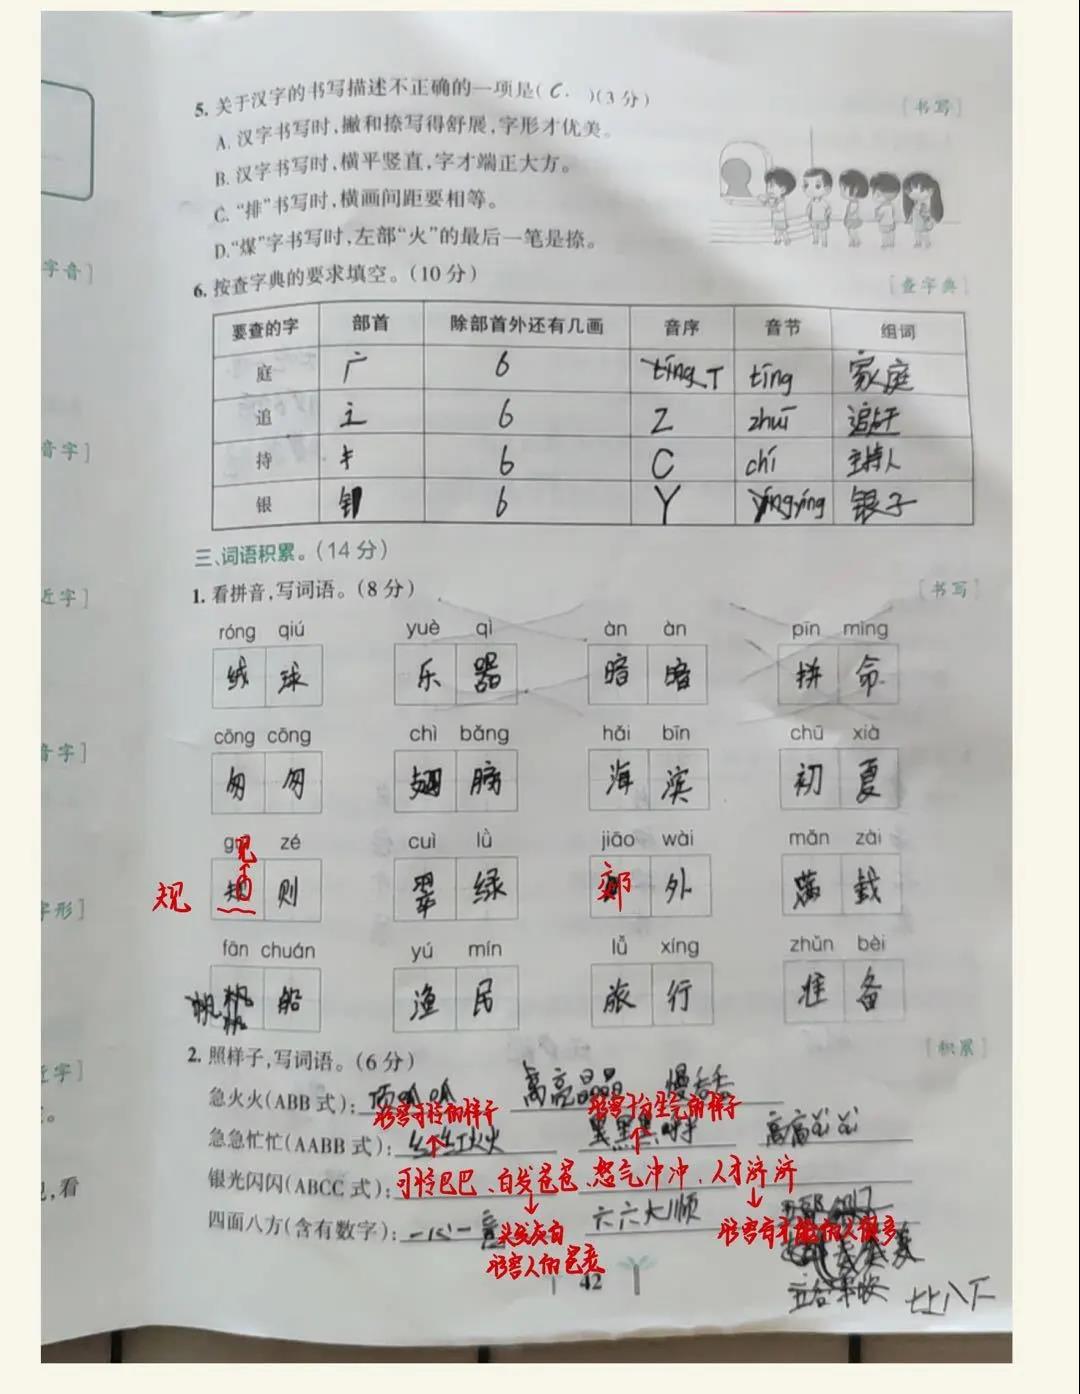 5. 关于汉字的书写描述不正确的一项是( C. )(3分) [书写]
A. 汉字书写时,撇和捺写得舒展,字形才优美。
B. 汉字书写时,横平竖直,字才端正大方。
C. “排”书写时,横画间距要相等。
D.“煤”字书写时,左部“火”的最后一笔是捺。
字音]
6. 按查字典的要求填空。(10分) [查字典]
要查的字 部首 除部首外还有几画 音序 音节 组词
庭 广 6 T tíng 家庭
追 辶 6 Z zhuī
音字]
持 扌 6 C chí 主持人
银 钅 6 Y 银子
三、词语积累。(14分)
近字]
1. 看拼音,写词语。(8分) [书写]
róng qiú yuè qì àn àn pīn mìng
绒 球 乐 器 暗 暗 拼 命
cōng cōng chì bǎng hǎi bīn chū xià
音字]
匆 匆 翅 膀 海 滨 初 夏
zé cuì lǜ jiāo wài mǎn zài
见
规 则 翠 绿 郊 外 满 载
字形]
fān chuán yú mín lǚ xíng zhǔn bèi
帆 船 渔 民 旅 行 准 备
2. 照样子,写词语。(6分) [积累]
近字]
急火火(ABB式):
形容可怜的样子 形容十分生气的样子
急急忙忙(AABB式):
银光闪闪(ABCC式):可怜巴巴、白发苍苍、怒气冲冲、人才济济
,看
四面八方(含有数字):一心一意 六六大顺
头发灰白
形容人的苍老
形容有才能的人很多
七上八下
42